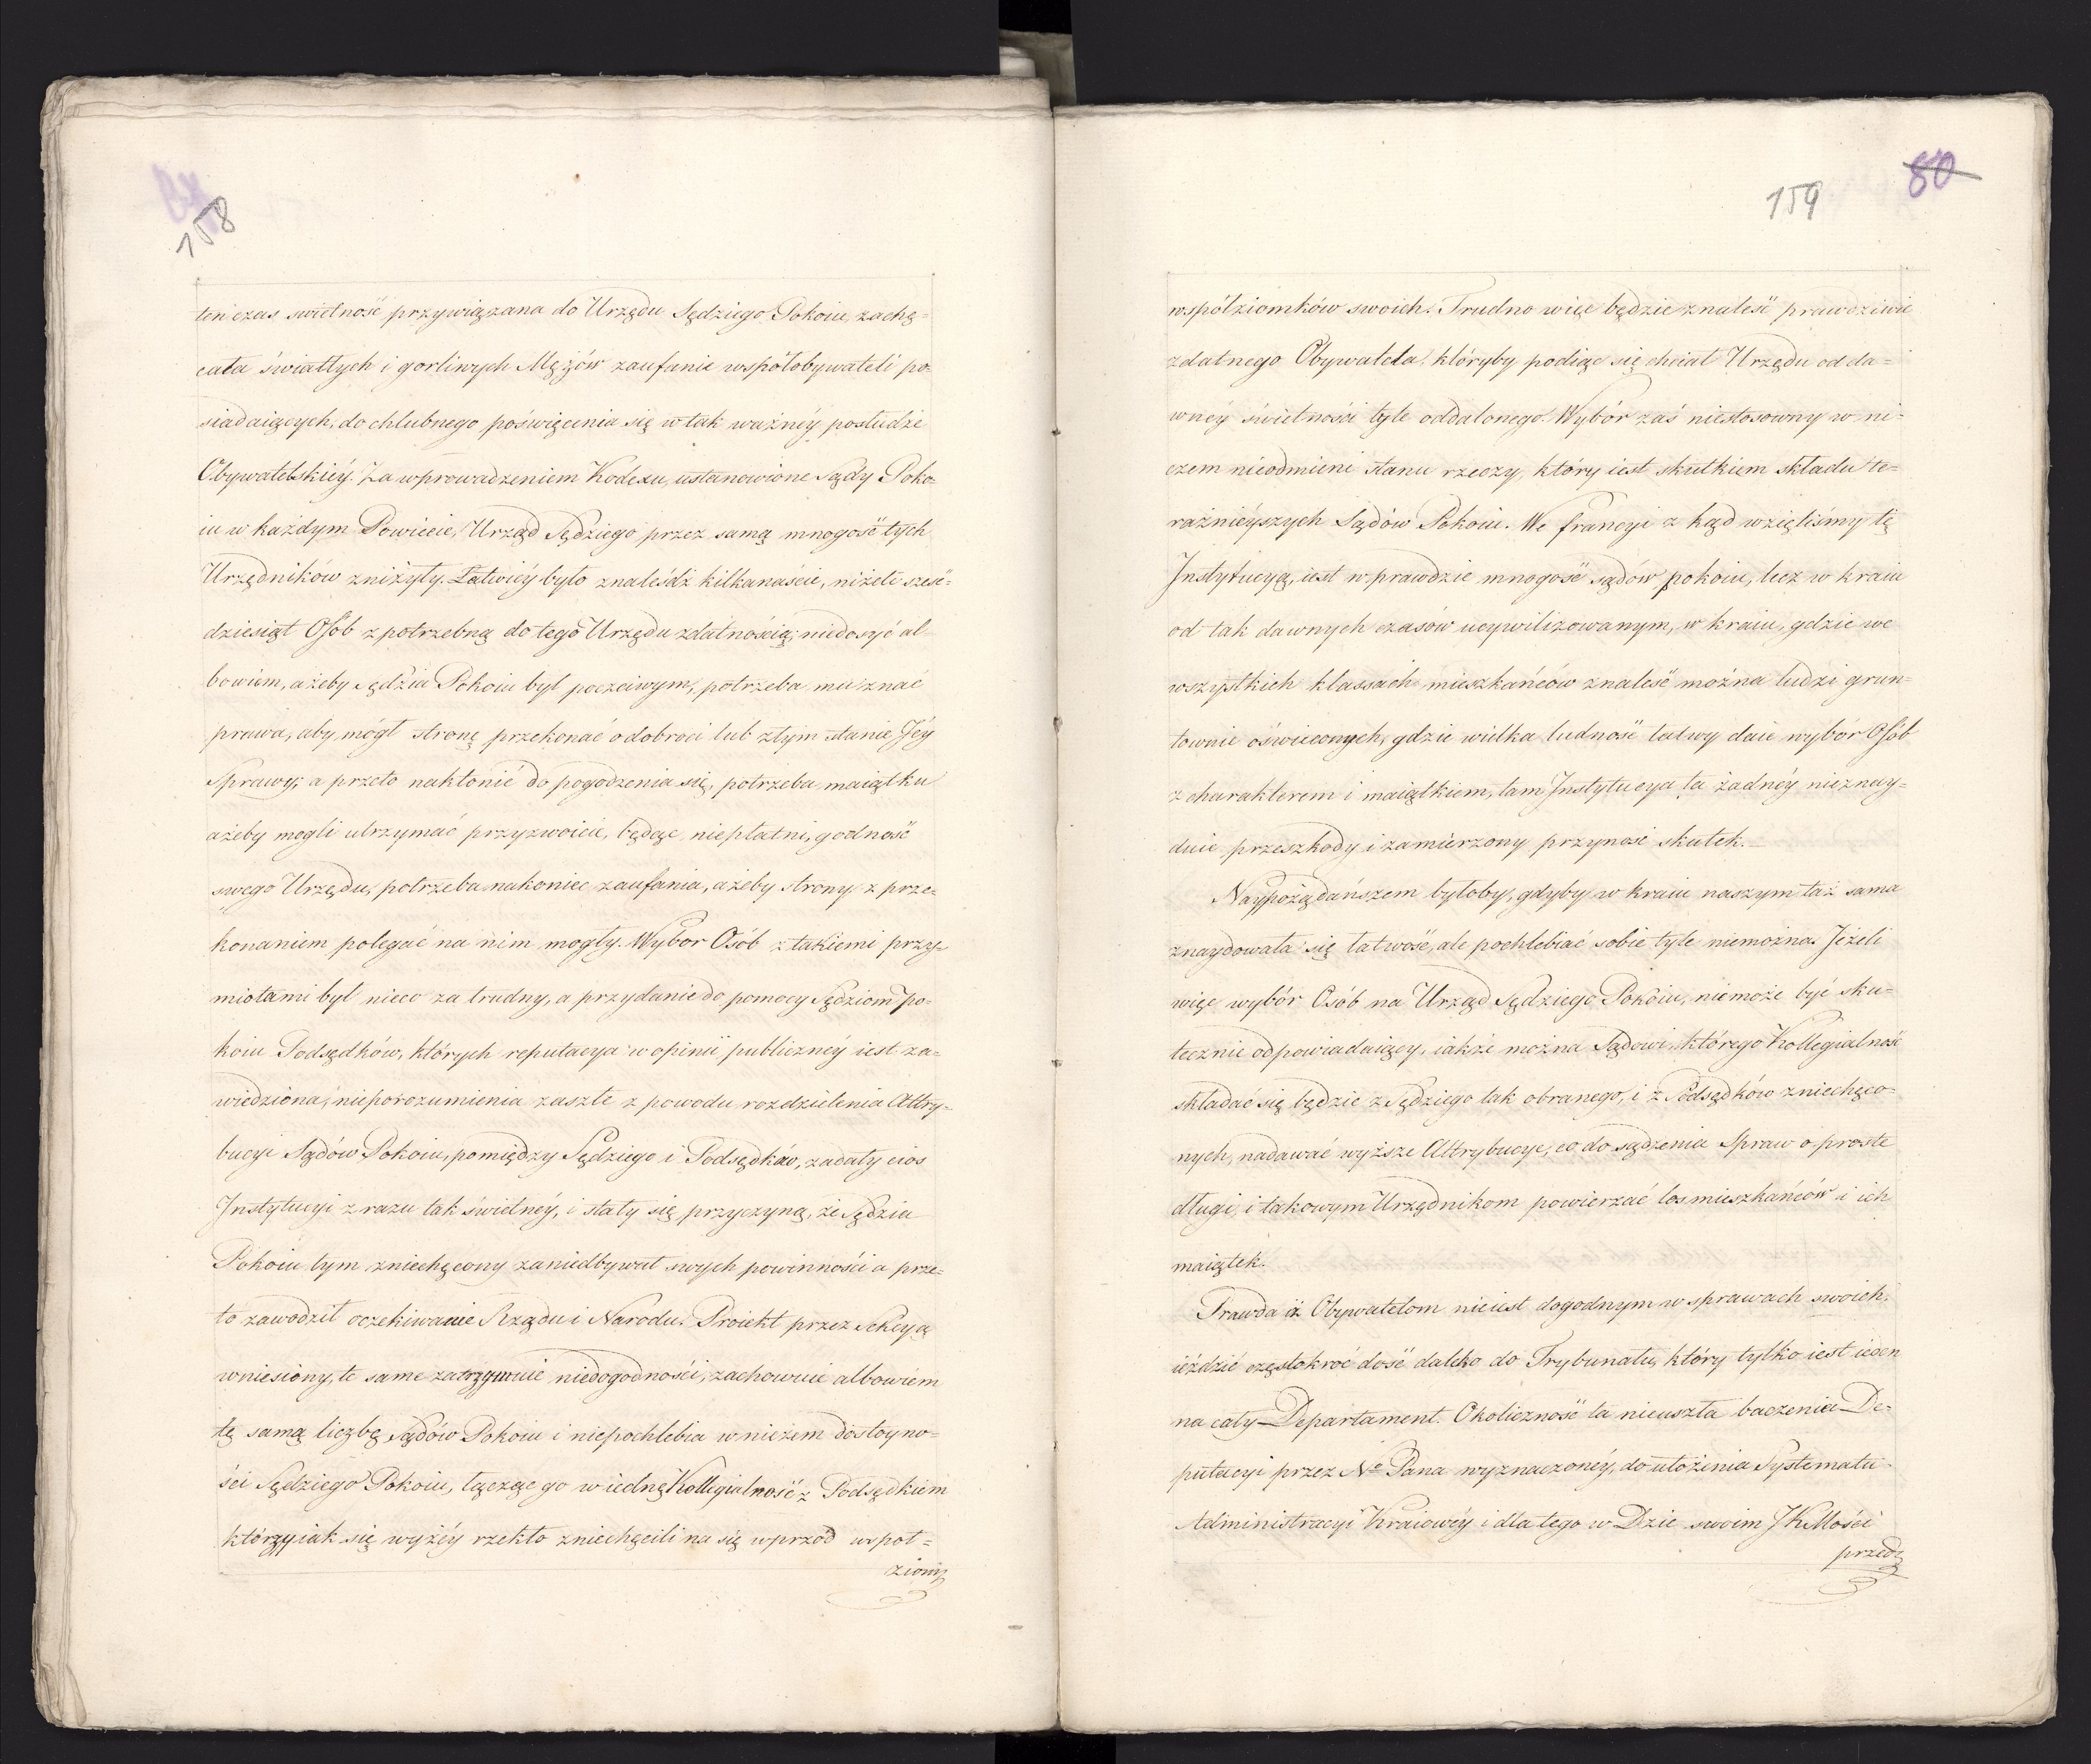 158
ten czas swietność przywiązana do Urzędu Sędziego Pokoiu, zachę=
cała światłych i gorliwych Mężów zaufanie współobywateli po=
siadaiących, do chlubnego poświęcenia się w tak ważnéy posłudze
Obywatelskiéy. Za wprowadzeniem Kodexu, ustanowione Sądy Poko=
iu w każdym Powiecie, Urząd Sędziego przez samą mnogość tych
Urzędników zniżyły. Łatwiéy było znaleśdź kilkanaście, niżeli sześć=
dziesiąt Osob z potrzebną do tego Urzędu zdatnością; niedosyć al=
bowiem, ażeby Sędzia Pokoiu był poczciwym, potrzeba mu znać
prawa, aby mógł stronę przekonać o dobroci lub złym stanie Jéy
Sprawy; a przeto nakłonić do pogodzenia się, potrzeba maiątku
ażeby mogli utrzymać przyzwoicie, będąc niepłatni, godność
swego Urzędu, potrzeba nakoniec zaufania, ażeby strony z prze=
konaniem polegać na nim mogły. Wybor Osób z takiemi przy=
miotami był nieco za trudny, a przydanie do pomocy Sędziom Po=
koiu Podsędków, których reputacya w opinii publicznéy iest za=
wiedziona, nieporozumienia zaszłe z powodu rozdzielenia Attry=
bucyi Sądów Pokoiu, pomiędzy Sędziego i Podsędków, zadały cios
Instytucyi z razu tak świetnéy, i stały się przyczyną, że Sędzia
Pokoiu tym zniechęcony zaniedbywał swych powinności a prze=
to zawodził oczekiwanie Rządu i Narodu. Proiekt przez Sekcyą
wniesiony, te same zatrzymuie niedogodności, zachowuie albowiem
tę samą liczbę Sądów Pokoiu i niepochlebia w niczem dostoyno=
ści Sędziego Pokoiu, łącząc go w iedną Kollegialność z Podsędkiem
którzy iak się wyżéy rzekło zniechęcili na się wprzód współ=
ziom
159
80
współziomków swoich. Trudno więc będzie znaleść prawdziwie
zdatnego Obywatela, któryby podiąć się chciał Urzędu od da=
wnéy świetności tyle oddalonego. Wybór zaś niestosowny w ni=
czem nieodmieni stanu rzeczy, który iest skutkiem składu te=
raźnieyszych Sądów Pokoiu. We francyi z kąd wzięliśmy tę
Instytucyą, iest wprawdzie mnogość sądów pokoiu, lecz w kraiu
od tak dawnych czasów ucywilizowanym, w kraiu, gdzie we
wszystkich klassach mieszkańców znaleść można ludzi grun=
townie oświeconych, gdzie wielka ludność łatwy daie wybór Osób
z charakterem i maiątkiem, tam Instytucya ta żadnéy nieznay=
duie przeszkody i zamierzony przynosi skutek.
Naypożądańszem byłoby, gdyby w kraiu naszym taż sama
znaydowała się łatwość, ale pochlebiać sobie tyle niemożna. Jeżeli
więc wybór Osób na Urząd Sędziego Pokoiu, niemoże być sku=
tecznie odpowiadaiący, iakże można Sądowi, którego Kollegialność
składać się będzie z Sędziego tak obranego, i z Podsędków zniechęco=
nych, nadawać wyższe Attrybucye, co do sądzenia Spraw o proste
długi, i takowym Urzędnikom powierzać los mieszkańców i ich
maiątek.
Prawda iż Obywatelom nieiest dogodnym w sprawach swoich,
ieździć częstokroć dość daleko do Trybunału, który tylko iest ieden
na cały Departament. Okoliczność ta nieuszła baczenia De=
putacyi przez Nº Pana wyznaczonéy, do ułożenia Systematu
Administracyi Kraiowéy i dla tego w Dzie swoim JKMości
przed